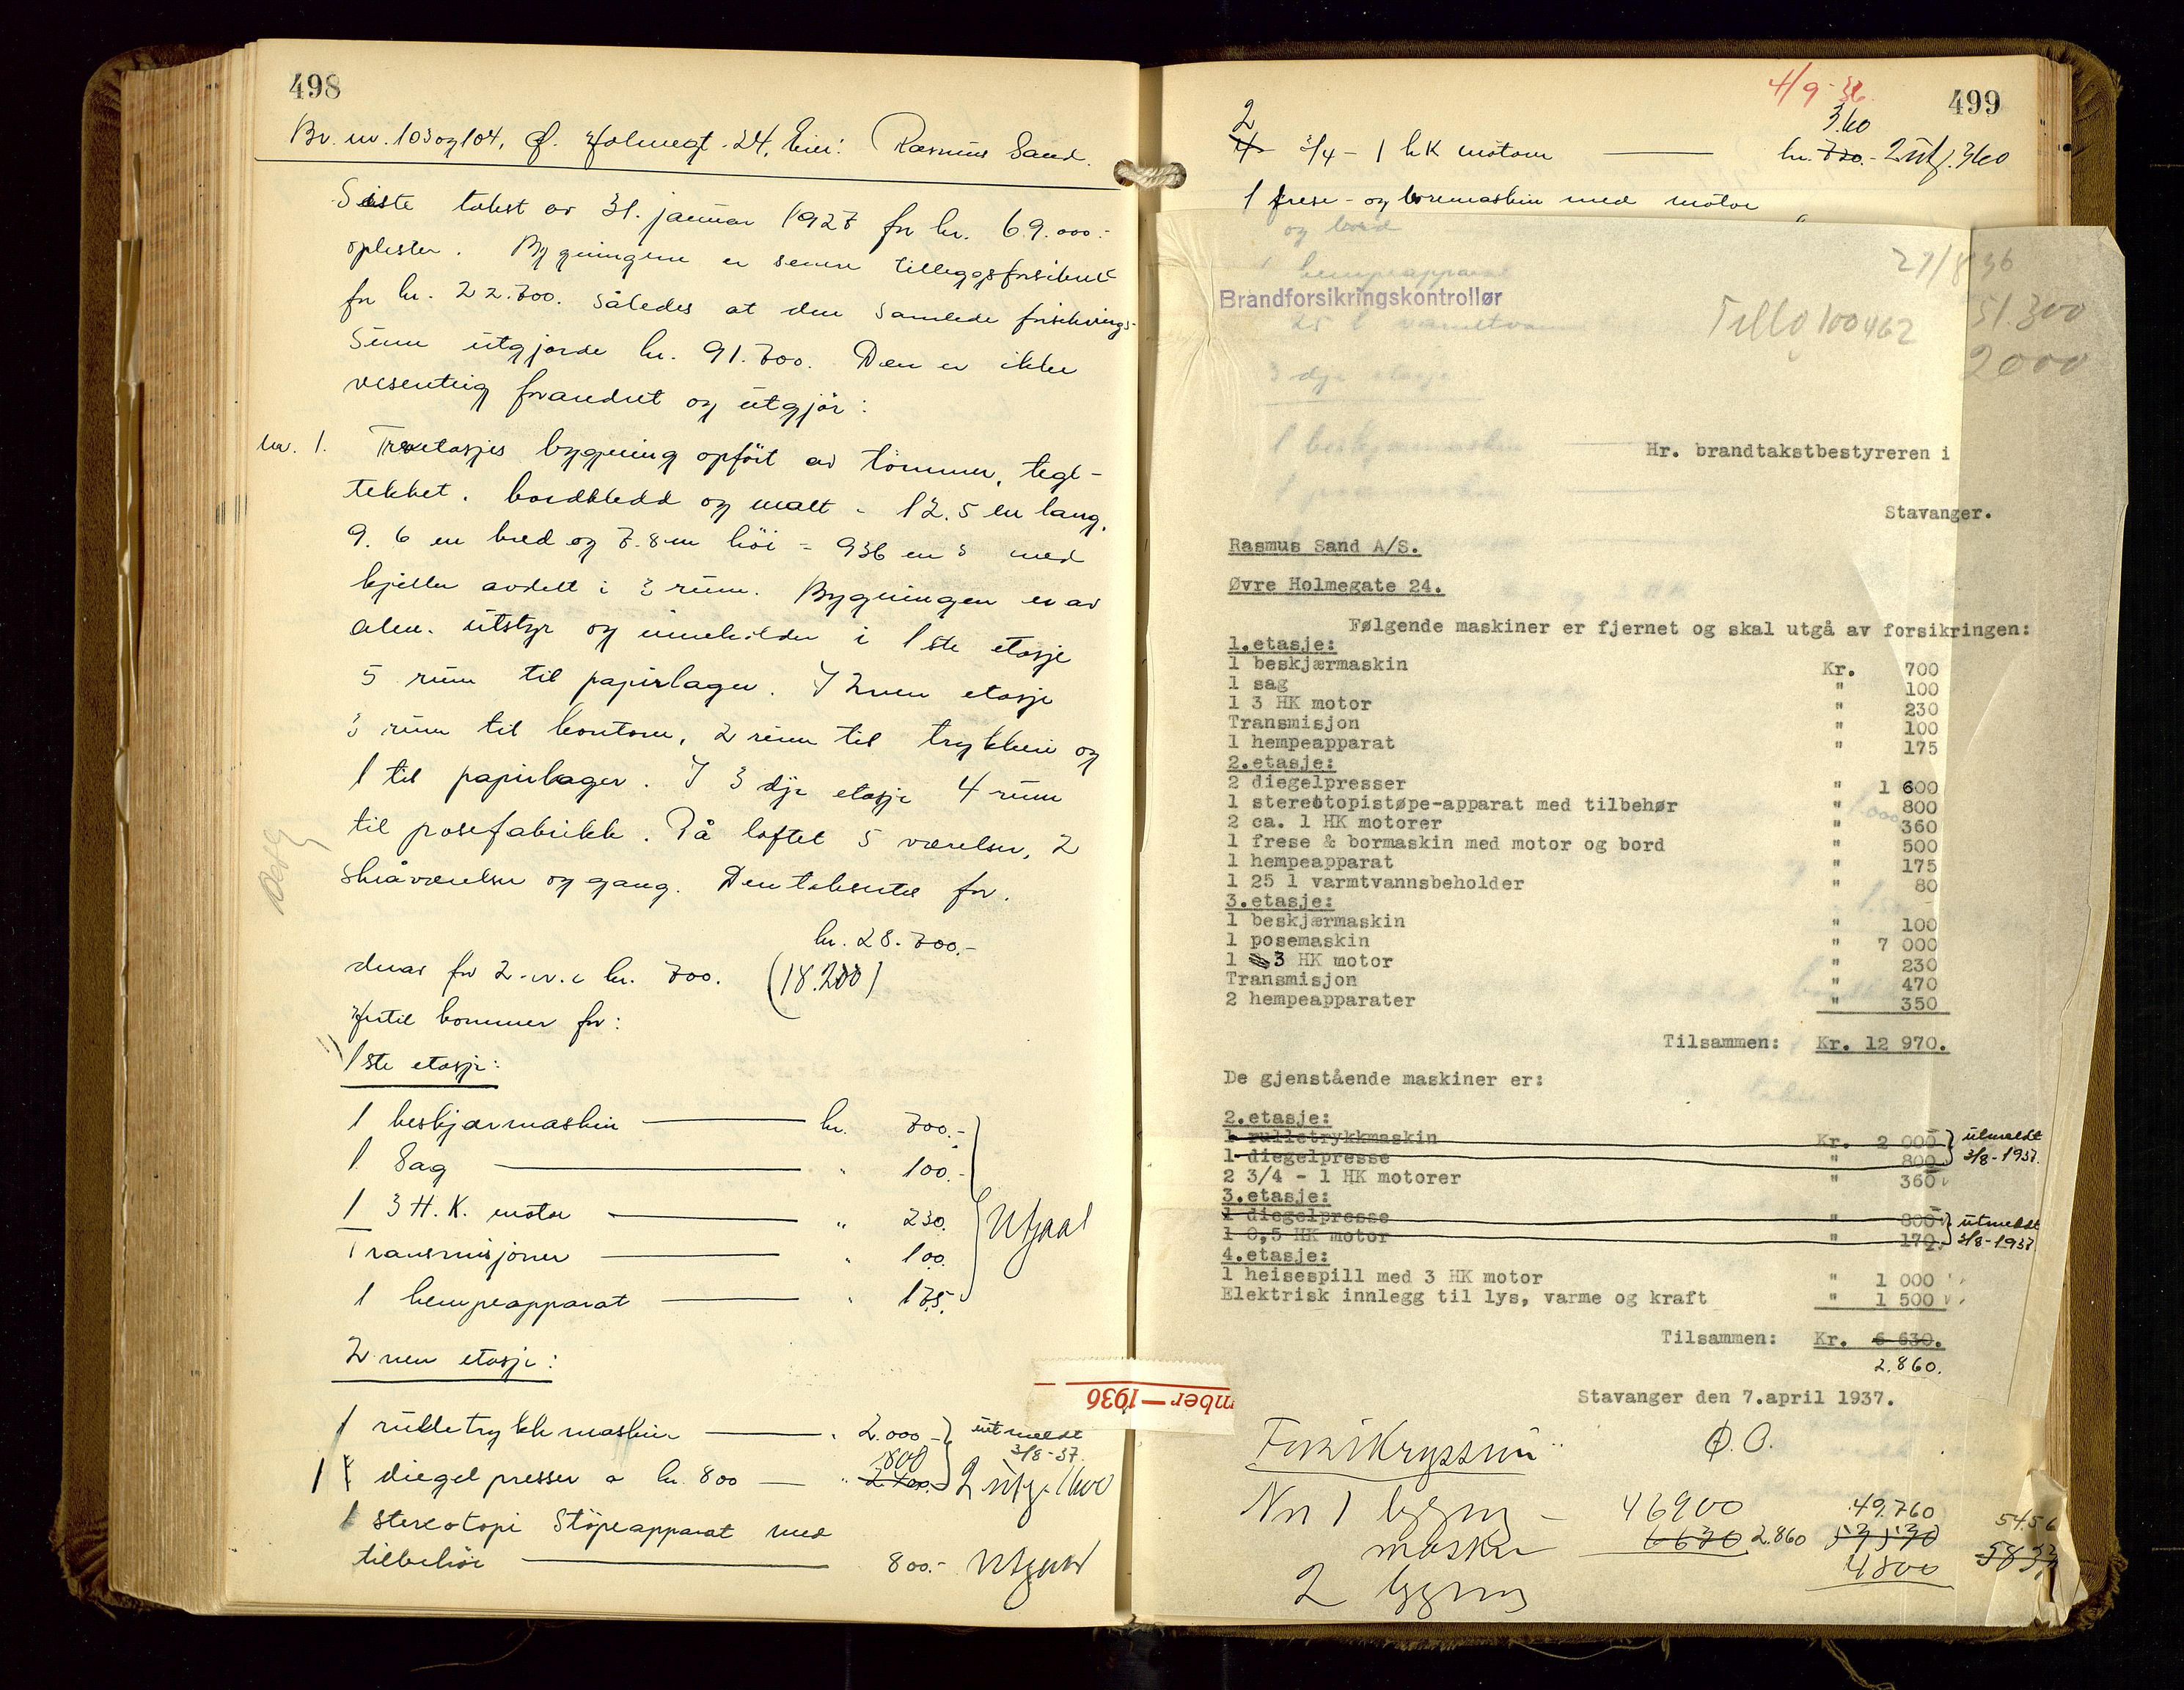 498
Br. nr. 103 og 104, Ø. Holmegt. 24, Eier: Rasmus Sand.
Siste takst av 31. januar 1927 for kr. 69.000.-
opleser. Bygningene er senere tilleggsforsikret
for kr. 22.700. således at den samlede forsikrings-
sum utgjorde kr. 91.700. Den er ikke
vesentlig forandret og utgjör:
nr. 1. Treetasjes bygning opfört av tömmer, tegl-
tekket, bordkledd og malt - 12.5 m lang,
9.6 m bred og 7.8 m höi = 936 m3 med
kjeller avdelt i 3 rum. Bygningen er av
alm. utstyr og inneholder i 1ste etasje
5 rum til papirlager. I 2nen etasje
3 rum til kontorer, 2 rum til trykkeri og
1 til papirlager. I 3dje etasje 4 rum
til posefabrikk. På loftet 5 værelser, 2
skråværelser og gang. Den takseres for.
kr. 28.700.-
derav for 2 w.c kr. 700. (18.200)
Hertil kommer for:
1ste etasje:
1 beskjærmaskin kr. 700.-
1 Sag " 100.-
1 3 H.K. motor " 230.
Transmisjoner " 100.
1 hempeapparat " 175.
Utgaat
2nen etasje:
1 rulletrykkmaskin " 2.000.- utmeldt
3/8-37.
800
1 diegelpresser a kr. 800 " 2400.- 2 utg. 1600
1 stereotopi Stöpeapparat med
tilbehör 800.- Utgaat
mber—1936
4/9-36
499
2 360
4 3/4 - 1 hK motorer kr. 720.- 2 utg. 360
1 frese- og boremaskin med motor
og bord
1 hempeapparat
Brandforsikringskontrollør
27/8 36
Tillg 100462
51.300
2000
3 dje etasje
1 beskjærmaskin
Hr. brandtakstbestyreren i
Stavanger.
Rasmus Sand A/S.
Øvre Holmegate 24.
Følgende maskiner er fjernet og skal utgå av forsikringen:
1.etasje:
1 beskjærmaskin Kr. 700
1 sag " 100
1 3 HK motor " 230
Transmisjon " 100
1 hempeapparat " 175
2.etasje:
2 diegelpresser " 1 600
1 stereotopistøpe-apparat med tilbehør " 800
2 ca. 1 HK motorer " 360
1 frese & bormaskin med motor og bord " 500
1 hempeapparat " 175
1 25 l varmtvannsbeholder " 80
3.etasje:
1 beskjærmaskin " 100
1 posemaskin " 7 000
1 3 HK motor " 230
Transmisjon " 470
2 hempeapparater " 350
Tilsammen: Kr. 12 970.
De gjenstående maskiner er:
2.etasje:
1 rulletrykkmaskin Kr. 2 000 utmeldt
1 diegelpresse " 800 3/8-1937.
2 3/4 - 1 HK motorer " 360
3.etasje:
1 diegelpresse " 800 utmeldt
1 0,5 HK motor " 170. 3/8-1937
4.etasje:
1 heisespill med 3 HK motor " 1 000
Elektrisk innlegg til lys, varme og kraft " 1 500
Tilsammen: Kr. 6 630.
2.860.
Stavanger den 7.april 1937.
Ø.O.
Nr 1 bygn - 46900 49.760
maskin 6630 2.860 53530
4800
2 bygn